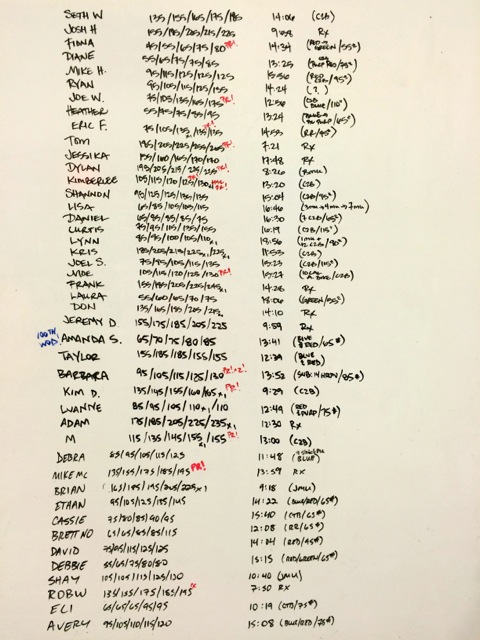 SETH W 135/155/165/175/185 14:06 (C2B)
JOSH H 155/185/205/215/225 9:58 RX
FIONA 45/55/65/75/80 PR! 14:34 (RED + GREEN/55#)
DIANE 55/65/75/75/85 13:25
MIKE H. 95/115/125/125/125 15:56
RYAN 95/105/115/125/135 14:24 (?)
JOE W. 75/105/135/165/175 PR! 12:56 (C2B BLUE/110#)
HEATHER 55/45/75/85/95 13:24
ERIC F. 75/105/135/135/135 14:55 (RR/95#)
TOM 185/205/225/255/265 PR! 7:21 RX
JESSIKA 155/160/165/170/170 17:48 RX
DYLAN 195/205/215/225/235 PR! 8:26
KIMBERLEE 105/115/120/125/130 13:20 (C2B)
SHANNON 95/125/125/135/135 15:04 (C2B/95#)
LISA 65/85/105/105/115 16:46
DANIEL 65/85/85/85/75 16:30
CURTIS 75/95/115/135/155 16:19 (C2B/115#)
LYNN 85/95/100/105/110x1 18:56
KRIS 185/205/215/225x1/225x1 11:53 (C2B)
JOEL S. 75/95/105/115/135 15:23 (C2B/115#)
MOE 105/115/120/125/130 PR! 15:27
FRANK 155/185/200/225/245x1 14:28 RX
LAURA 55/60/65/70/75 18:06 (GREEN/55#)
DON 135/165/195/205/225 14:10 RX
JEREMY D 155/175/185/205/225 9:59 RX
100TH WOD! AMANDA S. 65/70/75/80/85 13:41 (BLUE & RED/65#)
TAYLOR 155/185/185/155/155 12:39 (BLUE & RED)
BARBARA 95/105/115/125/130 PR! x2! 13:52
KIM D. 135/145/155/160/165x1 PR! 9:29 (C2B)
WANNE 85/95/105/110x1/110 12:49 (RED /75#)
ADAM 175/185/205/225/235x1 12:30 RX
M 115/135/145/155x1/155 PR! 13:00 (C2B)
DEBRA 85/95/105/115/125 11:48
MIKE MC 135/155/175/185/195 PR! 13:59 RX
BRIAN 165/185/195/205/225x1 9:18 (JMU)
ETHAN 95/105/125/135/145 14:22 (BLUE/RED/65#)
CASSIE 75/80/85/90/95 15:40
BRETT NO 61/65/85/85/115 12:08 (RR/65#)
DAVID 75/95/115/125/125 14:04 (RED/95#)
DEBBIE 55/65/75/80/80 15:15 (RED/GREEN/65#)
SHAY 105/105/115/125/130 10:40 (JMU)
ROB W 135/155/175/185/195 7:50 RX
ELI 65/65/65/95/95 10:19
AVERY 95/105/110/115/120 15:08 (BLUE/RED/75#)